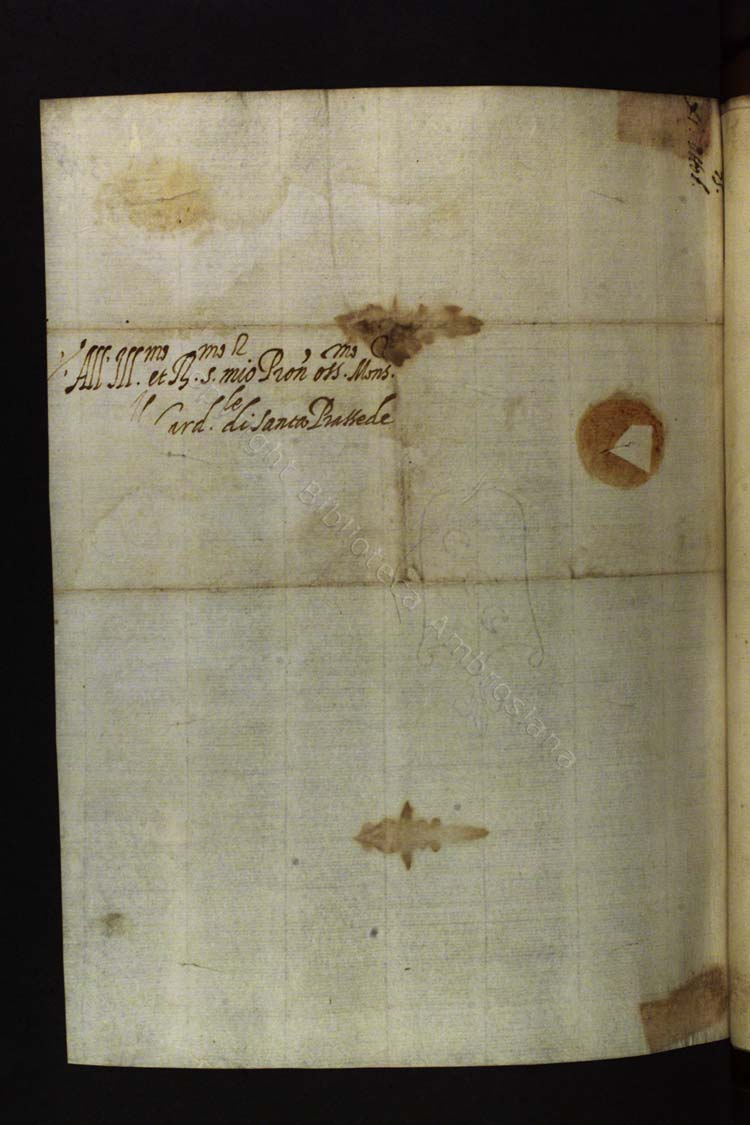 All' Ill.mo et R.mo S.R mio Pron' oss.mo Mons.
Il Card.le di Santa Prassede
25.
Copyright Biblioteca Ambrosiana